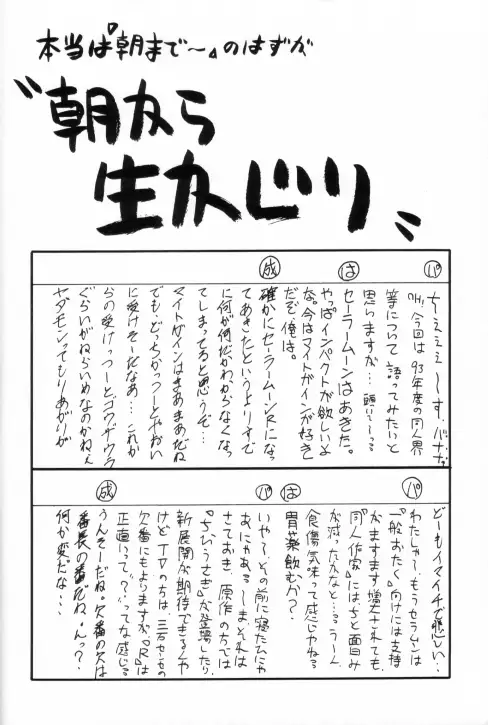 本当は『朝まで～』のはずが
〝朝から
生かじり〟
パ
ちぇぇぇ～す。バナナ
『H』、今回は93年度の同人界
等について語ってみたいと
思いますが…頼い～っる
は
セーラームーンはあきた。
やっぱインパクトが欲しいよ
な。今はマイトガインが好き
だぞ、俺は。
成
確かにセーラームーンRになっ
てあきたというよりすで
に何が何だかわからなくなっ
てしまってると思うぞ…
マイトガインはまあまあだね
でも、どっちかっつーとやおい
に受けそーだなあ…これか
らの受けっつーとゴウザウラ
ぐらいがねらいめなのかねぇ
ヤダモンってもりあがりが
パ
どーもイマイチで悲しい…
わたしゃ～、もうセラムンは
『一般おたく』向けには支持
がますます増大されても、
『同人作家』にはちと面白み
が減ったかなと…うーん
食傷気味って感じやねる
は
胃薬飲むか？
パ
いや～、その前に寝たひにゃ
あにゃある～まそれは
さておき、原作の方では
『ちびうさぎ』が登場したり、
新展開が期待できるんや
けどTVの方は、三石セーラの
欠番にもよりますが『R』は
正直いって“？”ってな感じる
成
うんそーだね。欠番の欠は
番長の番だね。んっ？
何か変だな…